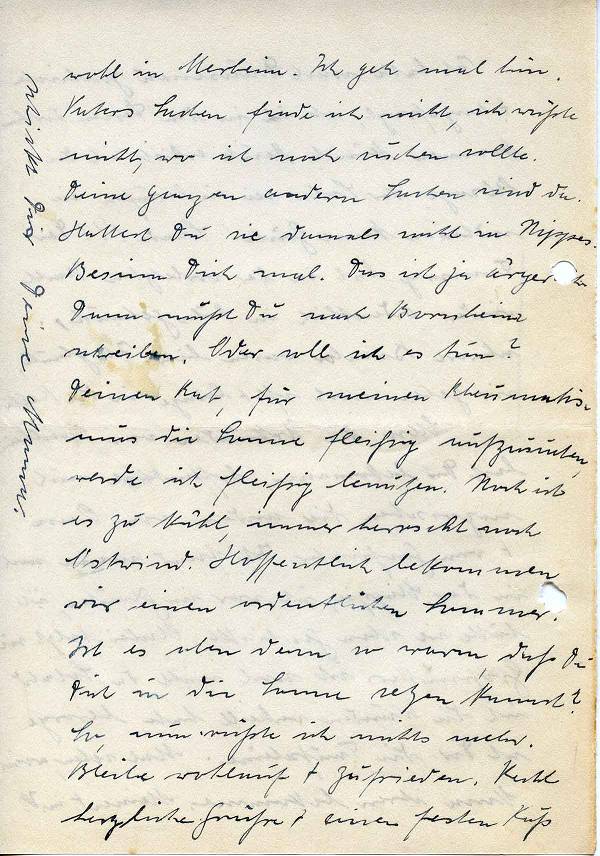 wohl in Merheim. Ich geh mal hin.
Vaters Sachen finde ich nicht, ich wüßte
nicht, wo ich noch suchen sollte.
Deine ganzen andern Sachen sind da.
Hattest Du sie damals mit in Nippes.
Besinn Dich mal. Das ist ja ärgerlich
Dann mußt Du nach Bornheim
schreiben. Oder soll ich es tun?
Deinen Rat, für meinen Rheumatis-
mus die Sonne fleißig aufzusuchen,
werde ich fleißig benutzen. Noch ist
es zu kühl, immer herrscht noch
Ostwind. Hoffentlich bekommen
wir einen ordentlichen Sommer.
Ist es oben denn so warm, daß Du
Dich in die Sonne setzen kannst?
So, nun wüßte ich nichts mehr.
Bleibe wohlauf + zufrieden. Recht
herzliche Grüße + einen festen Kuß
schickt Dir Deine Mama.